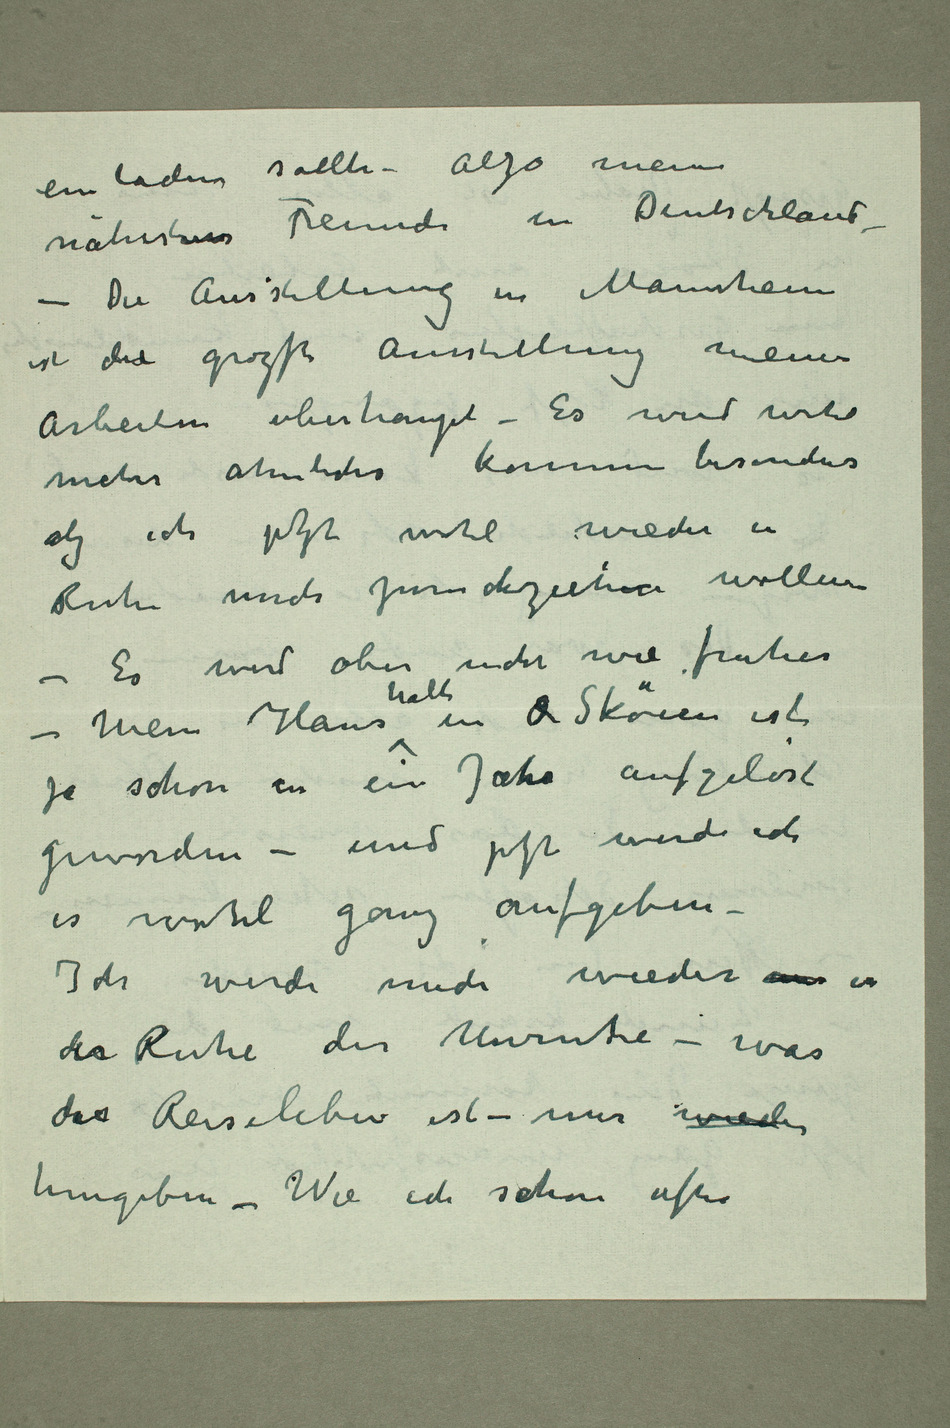 einladen sollte – alzo meine
nähesten Freunde in Deutschland –
– Die Ausstellung in Mannheim
ist die grozste Ausstellung meiner
Arbeiten überhaupt – Es wird wohl
mehr ähnliches kommen besonders
alz ich jetzt wohl wieder in
Ruhe mich zurückziehen wollen
– Es wird aber nicht wie früher
– Mein Haus halt in Sköien ist
ja schon in ein Jahr aufgelöst
geworden – und jetzt werde ich
es wohl ganz aufgeben –
Ich werde mich wieder in
der Ruhe der Unruhe – was
das Reiseleben ist – mir wieder
hingeben – Wie ich schon öfter